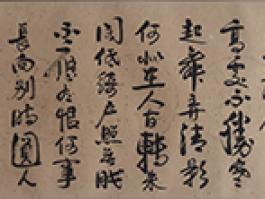 高處不勝寒
起舞弄清影
何似在人間轉朱
閣低綺戶照無眠
不應有恨何事
長向別時圓人